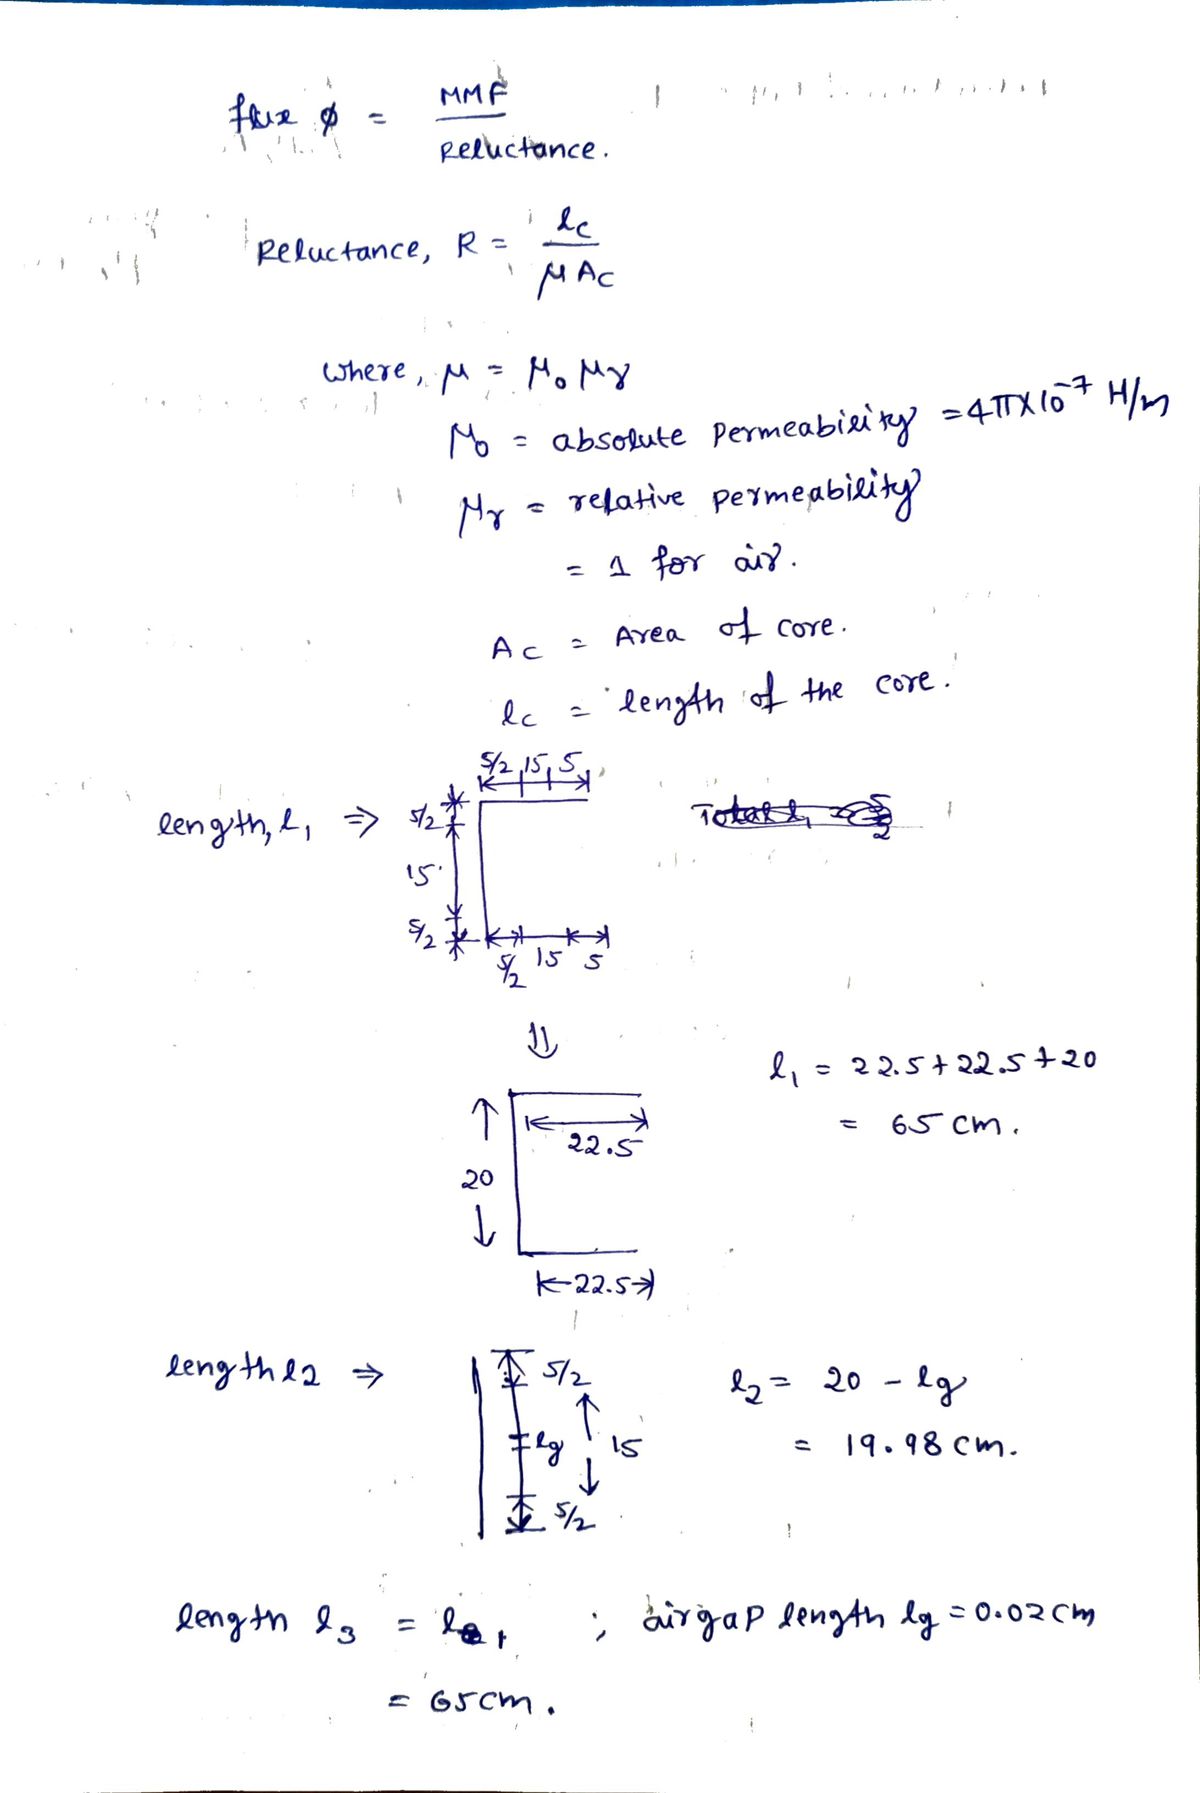 flux ϕ = MMF / Reluctance.
Reluctance, R = lc / μ Ac
where, μ = μ₀ μr
μ₀ = absolute permeability = 4π×10⁻⁷ H/m
μr = relative permeability
= 1 for air.
Ac = Area of core.
lc = length of the core.
5/2 15 5
length, l₁ ⇒ 5/2
15
5/2
5/2 15 5
⇓
l₁ = 22.5 + 22.5 + 20
22.5
= 65 cm.
20
22.5
length l2 ⇒ 5/2
l₂ = 20 - lg
lg 15
= 19.98 cm.
5/2
length l₃ = l₁ ; airgap length lg = 0.02 cm
= 65 cm.